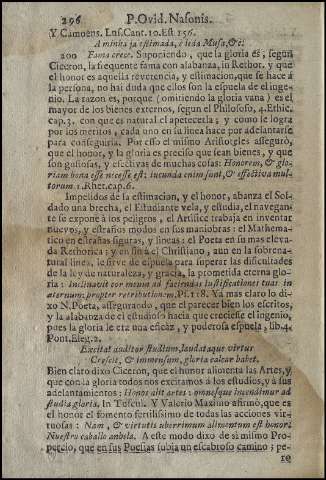 296 P. Ovid. Nasonis.
Y Camoens. Lus. Cant. 10. Est 156.
A minha ja estimada, è leda Musa, &c.
200 Fama cresc. Suponiendo, que la gloria es, segun
Ciceron, la frequente fama con alabanza, in Rethor. y que
el honor es aquella reverencia, y estimacion, que se hace á
la persona, no hai duda que ellos son la espuela de el inge-
nio. La razon es, porque (omitiendo la gloria vana) es el
mayor de los bienes externos, segun el Philosofo, 4. Ethic.
cap. 3. con que es natural el apetecerla; y como le logra
por los meritos, cada uno en su linea hace por adelantarse
para conseguirla. Por esso el mismo Aristoteles asseguró,
que el honor, y la gloria es preciso que sean bienes, y que
son gustosas, y efectivas de muchas cosas: Honorem, & glo-
riam bona esse necesse est; iucunda enim sunt, & effectiva mul-
torum: 1. Rhet. cap. 6.
Impelidos de la estimacion, y el honor, abanza el Sol-
dado una brecha, el Estudiante vela, y estudia, el navegan-
te se expone à los peligros, el Artifice trabaja en inventar
nuevos, y estraños modos en sus maniobras: el Mathema-
tico en estrañas figuras, y lineas: el Poeta en su mas eleva-
da Rethorica; y en fin a el Christiano, aun en la sobrena-
tural linea, le sirve de espuela para superar las dificultades
de la ley de naturaleza, y gracia, la prometida eterna glo-
ria: Inclinavit cor meum ad faciendas iustificationes tuas in
æternum: propter retributionem, Pf. 118. Yá mas claro lo di-
xo N. Poeta, assegurando, que el parecer bien los escritos,
y la alabanza de el estudioso hacia que creciesse el ingenio,
pues la gloria le era una eficaz, y puderosa espuela, lib. 4.
Pont. Eleg. 2.
Excitat auditor studium, laudataque virtus
Crescit, & immensum, gloria calcar habet.
Bien claro dixo Ciceron, que el honor alienta las Artes, y
que con la gloria todos nos excitamos à los estudios, y à sus
adelantamientos: Honor alit artes: omnesque incendimur ad
studia gloria. In Tuscul. Y Valerio Maximo afirmó, que es
el honor el fomento fertilissimo de todas las acciones vir-
tuosas: Nam, & virtutis uberrimum alimentum est honor.
Nuestro caballo anhela. A este modo dixo de si mismo Pro-
percio, que en sus Poesias subia un escabroso camino; pe-
ro